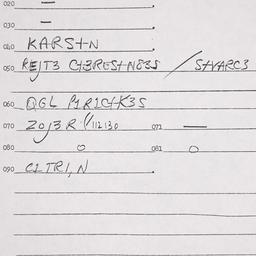 020 —
030 —
040 KARSTN
050 REJT3 CHBRESTN83S / STVARC3
060 QGL P1R1CHK3S
070 ZOJ3R 112130 071 —
080 0 081 0
090 C1TRI,N